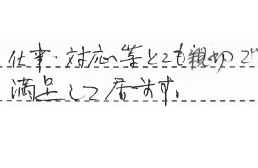 仕事・対応等とても親切で
満足して居ます。